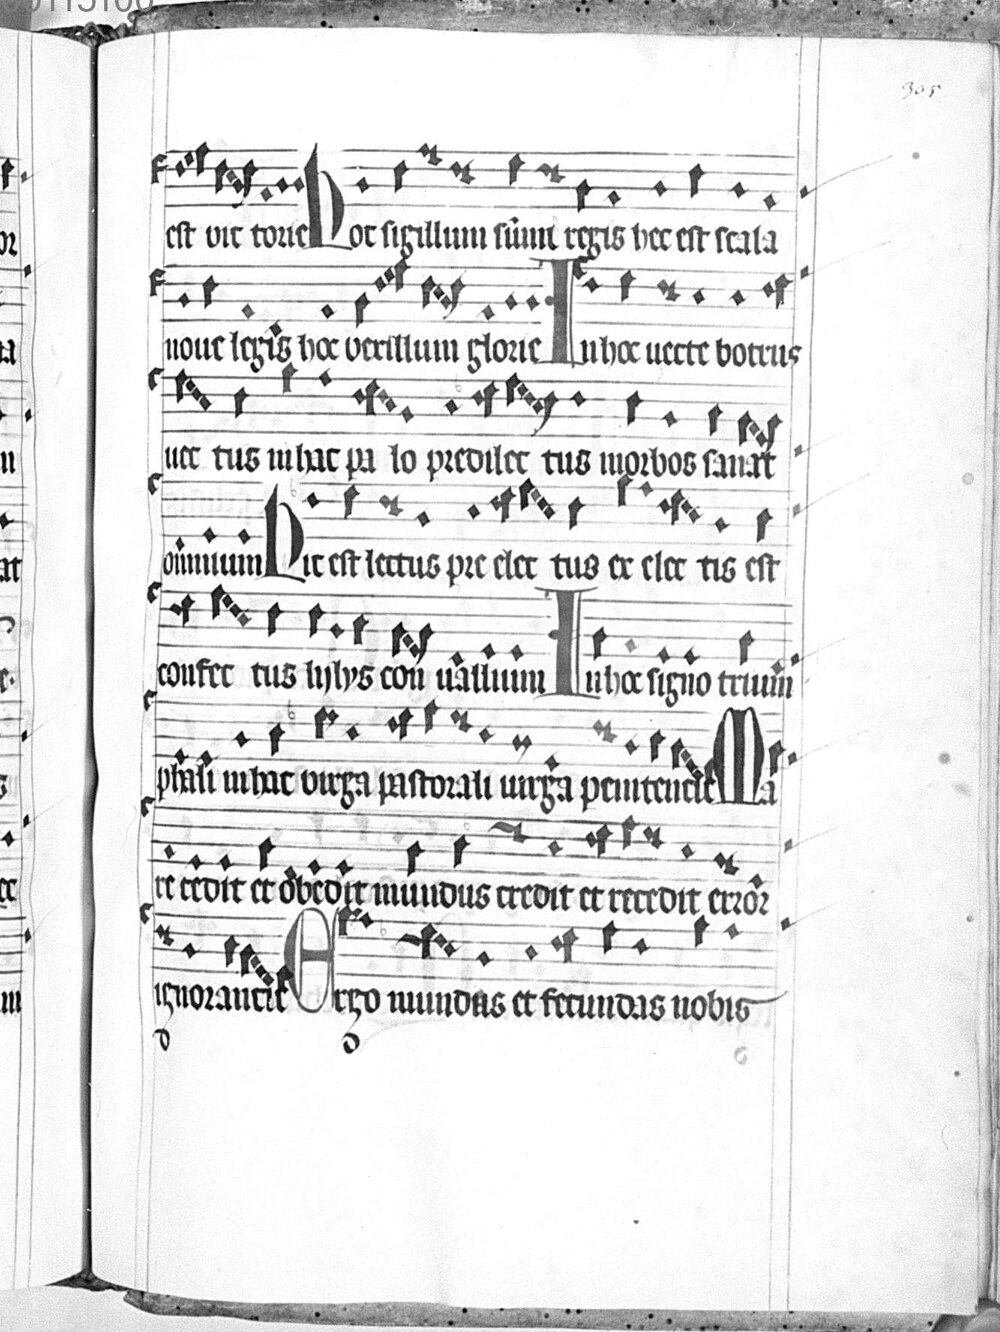 305
est vic torie Hoc sigillum sūmi regis hec est scala
noue legis hoc vexillum glorie In hoc uecte botrus
uec tus in hac pa lo predilec tus morbos sanat
omnium Hic est lectus pre elec tus ex elec tis est
confec tus lylys con uallium In hoc signo trium
phali in hac virga pastorali uirga penitencie Ma
re cedit et obedit mundus credit et recedit error
ignorancie Ergo mundas et fecundas nobis